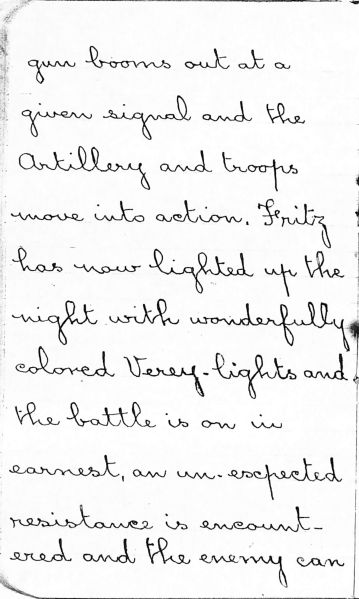 gun booms out at a
given signal and the
Artillery and troops
move into action. Fritz
has now lighted up the
night with wonderfully
colored Verey-lights and
the battle is on in
earnest, an un-escpected
resistance is encount-
ered and the enemy can